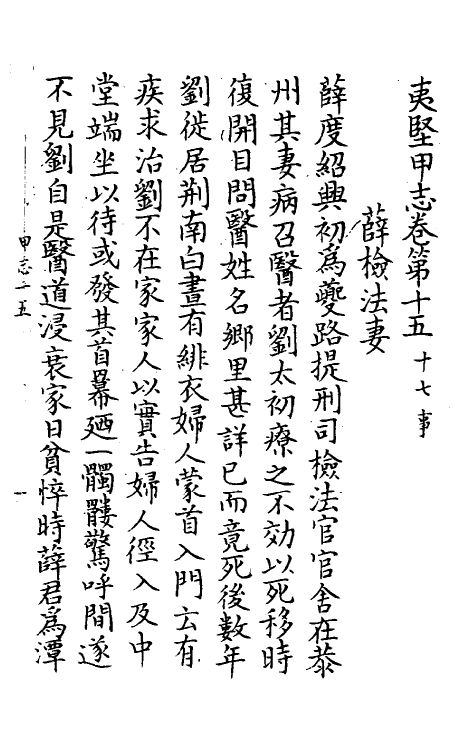 夷堅甲志卷第十五 十七事
薛檢法妻
薛度紹興初爲夔路提刑司檢法官官舍在恭
州其妻病召醫者劉太初療之不効以死移時
復開目問醫姓名鄉里甚詳已而竟死後數年
劉徙居荆南白晝有緋衣婦人蒙首入門云有
疾求治劉不在家家人以實告婦人徑入及中
堂端坐以待或發其首冪廼一髑髏驚呼間遂
不見劉自是醫道浸衰家日貧悴時薛君爲潭
甲志十五
一